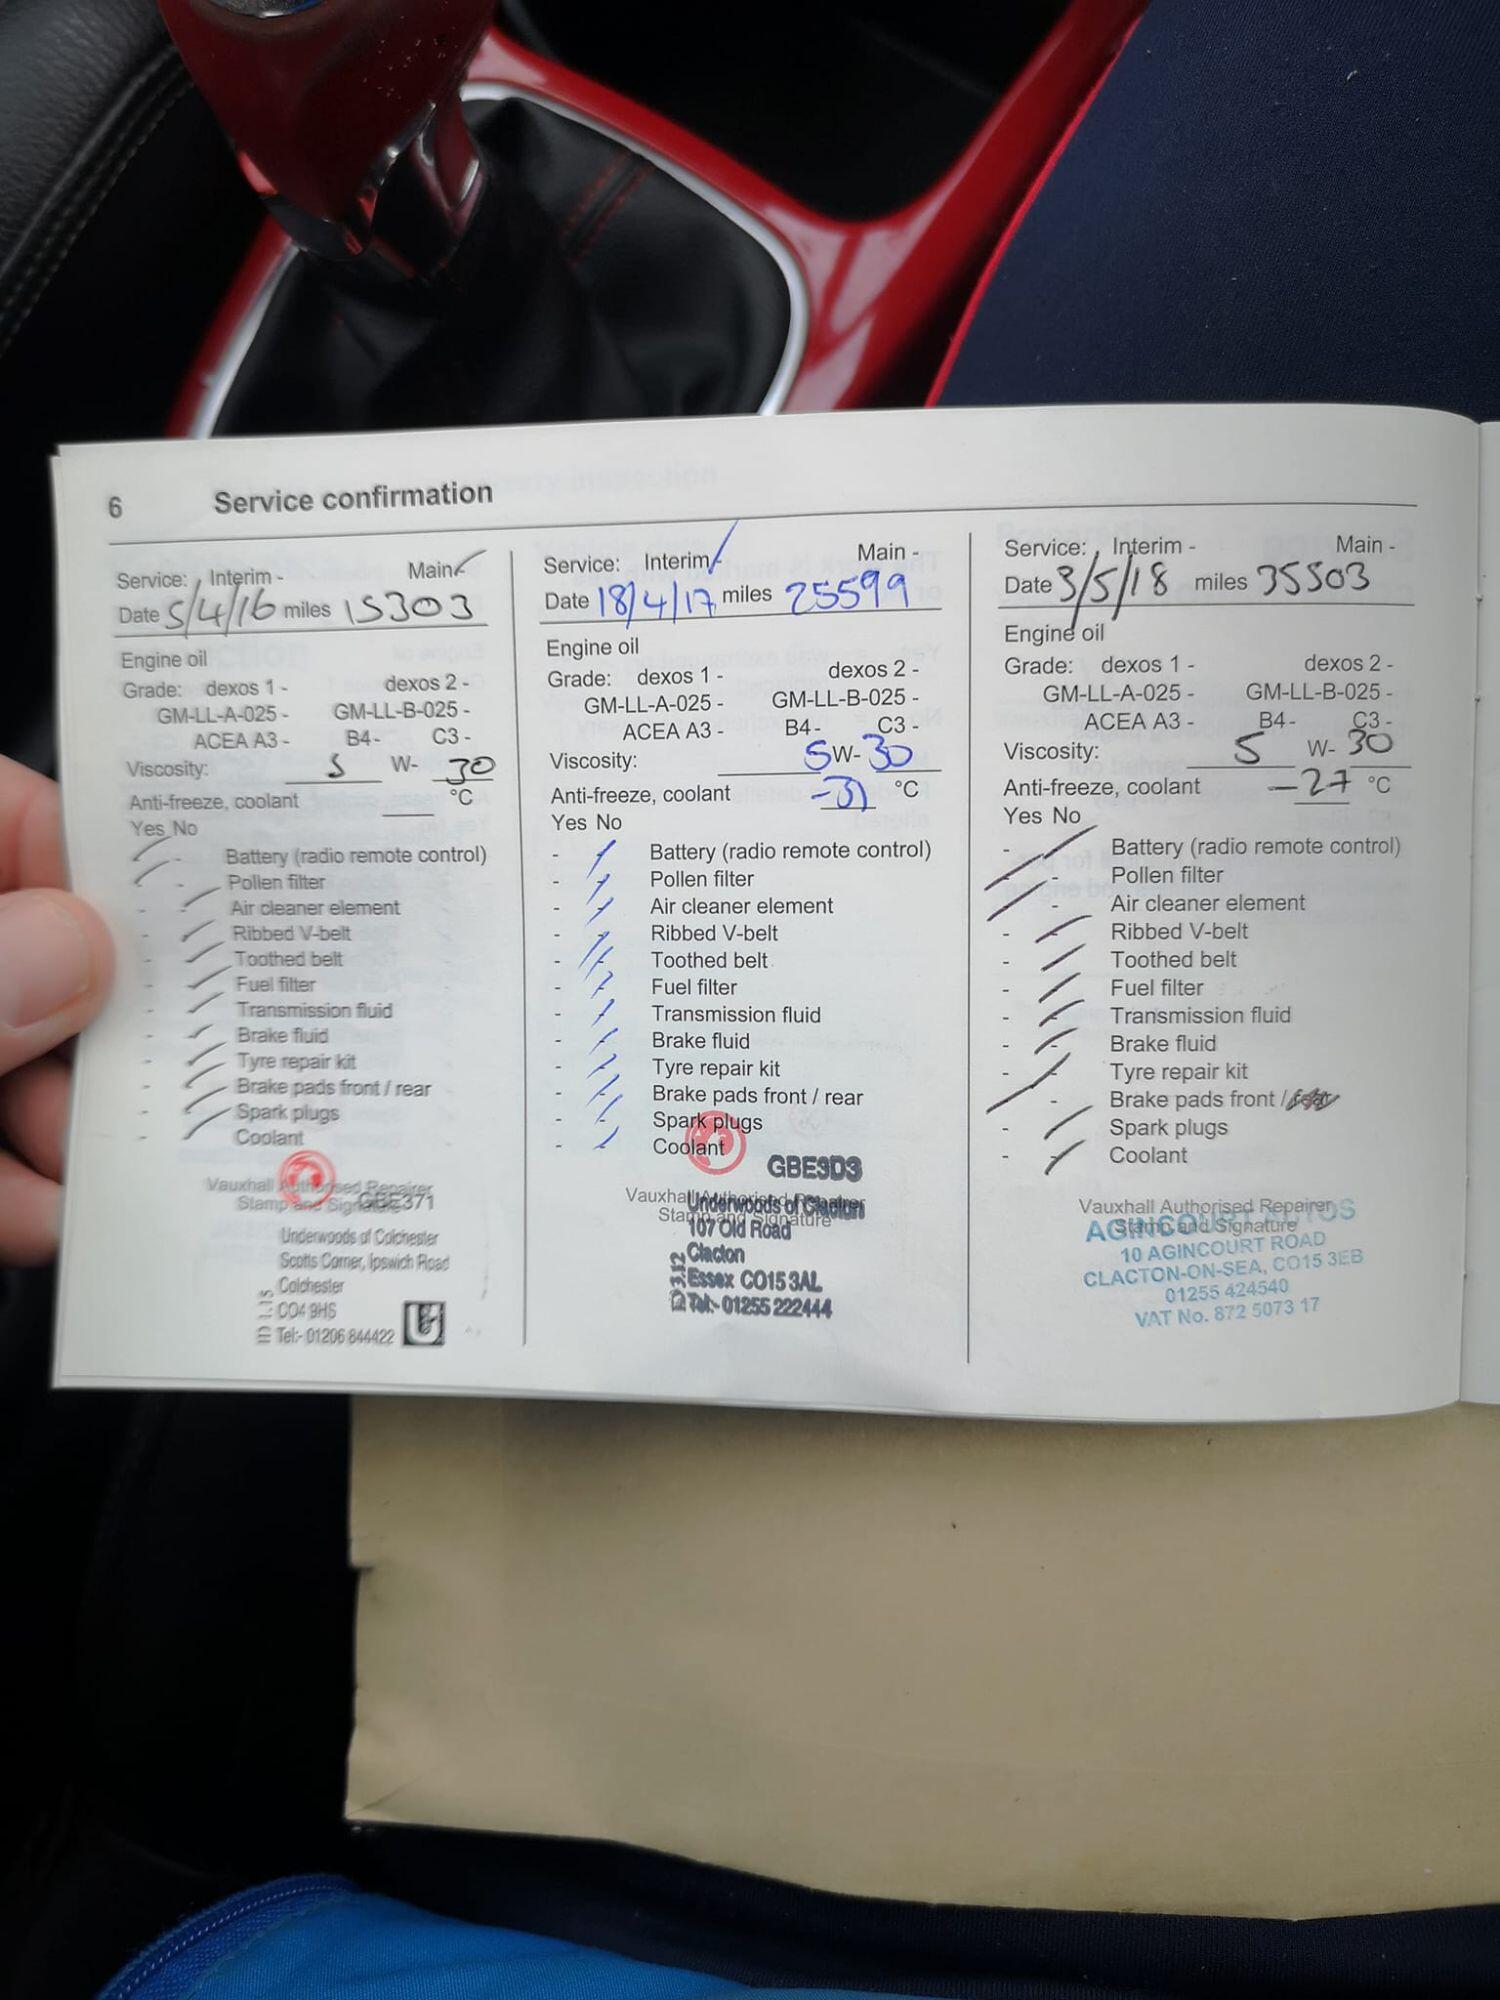 6 Service confirmation
Service: Interim - Main -
Date 5/4/16 miles 15303
Engine oil
Grade: dexos 1 - dexos 2 -
GM-LL-A-025 - GM-LL-B-025 -
ACEA A3 - B4- C3 -
Viscosity: 5 W- 30
Anti-freeze, coolant °C
Yes No
- - Battery (radio remote control)
- - Pollen filter
- - Air cleaner element
- - Ribbed V-belt
- - Toothed belt
- - Fuel filter
- - Transmission fluid
- - Brake fluid
- - Tyre repair kit
- - Brake pads front / rear
- - Spark plugs
- - Coolant
Vauxhall Authorised Repairer
Stamp and Signature
GBE371
Underwoods of Colchester
Scotts Corner, Ipswich Road
Colchester
CO4 9HS
Tel:- 01206 844422
Service: Interim - Main -
Date 18/4/17 miles 25599
Engine oil
Grade: dexos 1 - dexos 2 -
GM-LL-A-025 - GM-LL-B-025 -
ACEA A3 - B4- C3 -
Viscosity: 5 W- 30
Anti-freeze, coolant -31 °C
Yes No
- - Battery (radio remote control)
- - Pollen filter
- - Air cleaner element
- - Ribbed V-belt
- - Toothed belt
- - Fuel filter
- - Transmission fluid
- - Brake fluid
- - Tyre repair kit
- - Brake pads front / rear
- - Spark plugs
- - Coolant
GBE9D3
Vauxhall Authorised Repairer
Stamp and Signature
Underwoods of Clacton
107 Old Road
Clacton
Essex CO15 3AL
Tel:- 01255 222444
Service: Interim - Main -
Date 3/5/18 miles 35503
Engine oil
Grade: dexos 1 - dexos 2 -
GM-LL-A-025 - GM-LL-B-025 -
ACEA A3 - B4- C3 -
Viscosity: 5 W- 30
Anti-freeze, coolant -27 °C
Yes No
- - Battery (radio remote control)
- - Pollen filter
- - Air cleaner element
- - Ribbed V-belt
- - Toothed belt
- - Fuel filter
- - Transmission fluid
- - Brake fluid
- - Tyre repair kit
- - Brake pads front /
- - Spark plugs
- - Coolant
Vauxhall Authorised Repairer
Stamp and Signature
AGINCOURT AUTOS
10 AGINCOURT ROAD
CLACTON-ON-SEA, CO15 3EB
01255 424540
VAT No. 872 5073 17